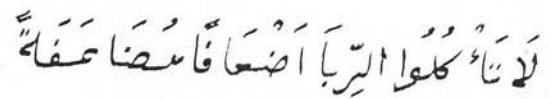 لَا تَأْكُلُوا الرِّبَا أَضْعَافًا مُضَاعَفَةً